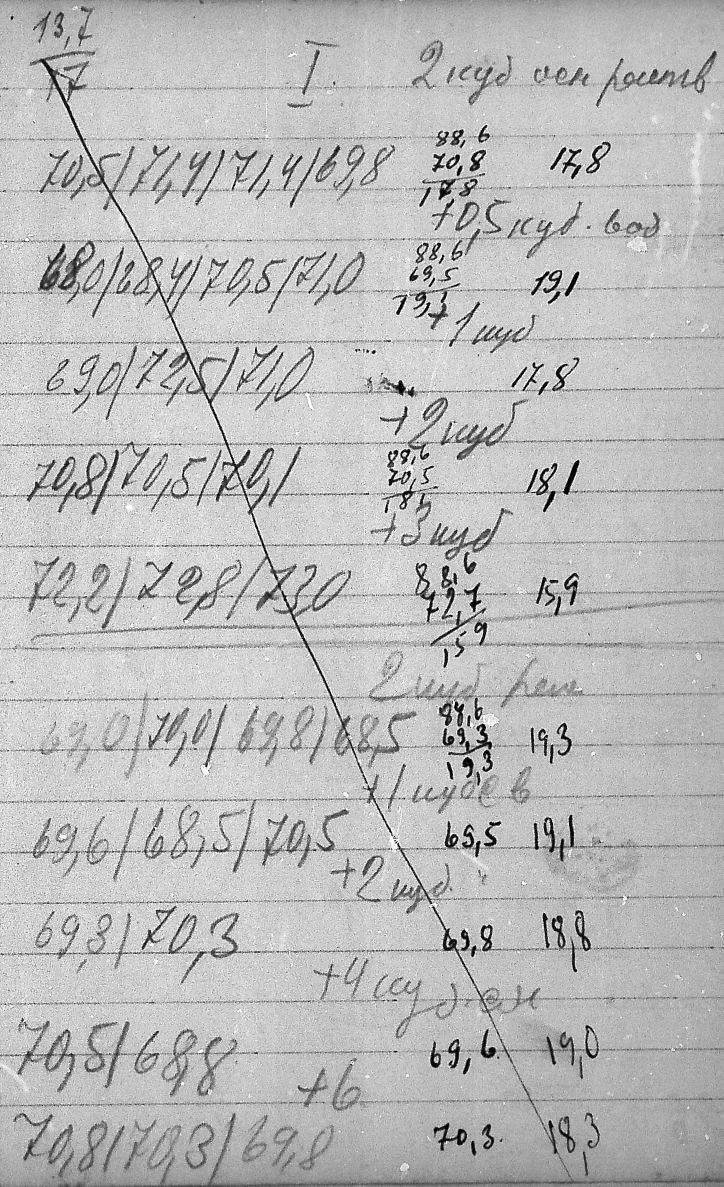 13,7
17
I. 2 куб осн раств
88,6
70,5 / 71,4 / 71,4 / 69,8 70,8 17,8
17,8
+0,5 куб. вод
88,6
68,0 / 68,4 / 70,5 / 71,0 69,5 19,1
19,1
+1 куб
69,0 / 72,5 / 71,0 17,8
+2 куб
88,6
70,8 / 70,5 / 70,1 70,5 18,1
18,1
+3 куб
88,6
72,2 / 72,8 / 73,0 72,7 15,9
15,9
2 куб
88,6
69,0 / 70,0 / 69,8 / 68,5 69,3 19,3
19,3
+1 куб в
69,6 / 68,5 / 70,5 69,5 19,1
+2 куб.
69,3 / 70,3 69,8 18,8
+4 куб.
70,5 / 68,8 69,6 19,0
+6
70,8 / 70,3 / 69,8 70,3. 18,3